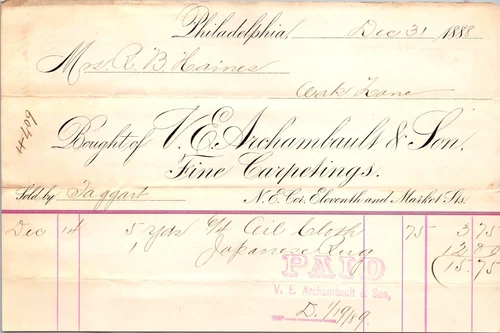 Philadelphia, Dec 31 1888
Mrs R. B. Haines
Oak Lane
#409
Bought of V. E. Archambault & Son.
Fine Carpetings.
Sold by Taggart N. E. Cor. Eleventh and Market Sts.
Dec 14 5 Yds 6/4 Oil Cloth 75 3 75
1 Japanese Rug 12 00
15.75
PAID
V. E. Archambault & Son,
D. 1/19/89